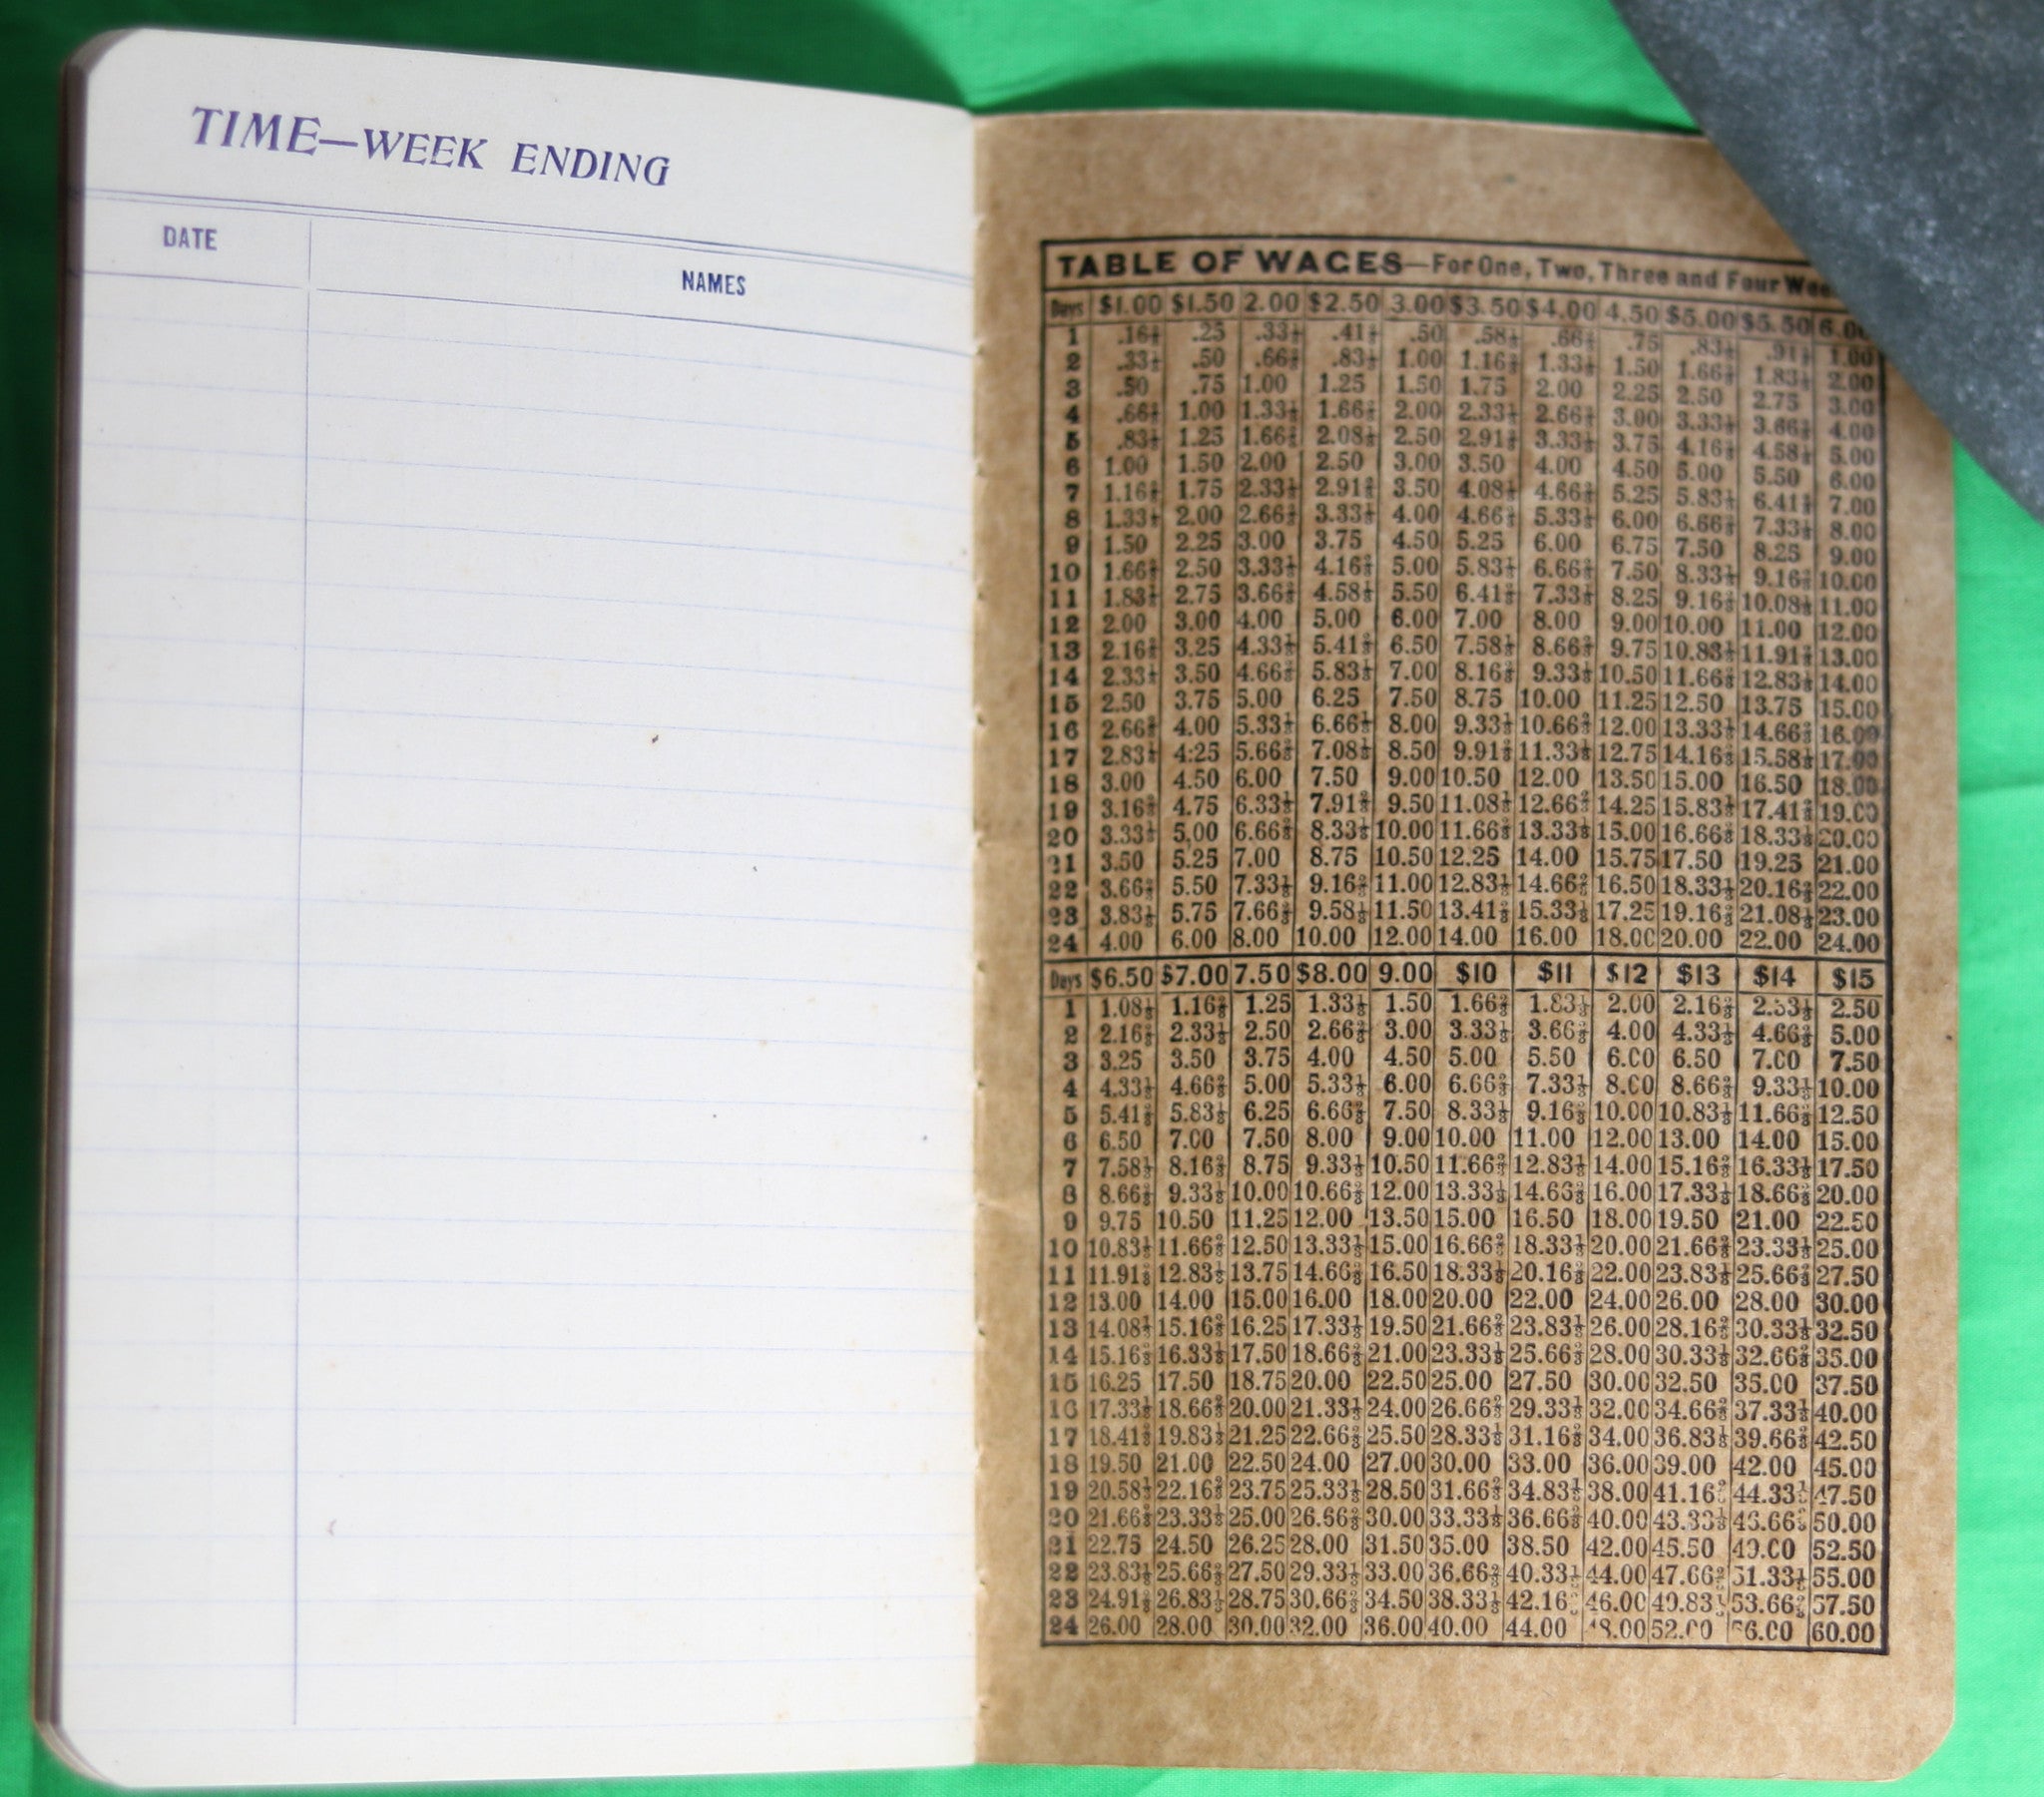 TIME—WEEK ENDING
DATE
NAMES
TABLE OF WAGES—For One, Two, Three and Four
Days $1.00 $1.50 2.00 $2.50 3.00 $3.50 $4.00 4.50 $5.00 $5.50 6.00
1 .16⅔ .25 .33⅓ .41⅔ .50 .58⅓ .66⅔ .75 .83⅓ .91⅔ 1.00
2 .33⅓ .50 .66⅔ .83⅓ 1.00 1.16⅔ 1.33⅓ 1.50 1.66⅔ 1.83⅓ 2.00
3 .50 .75 1.00 1.25 1.50 1.75 2.00 2.25 2.50 2.75 3.00
4 .66⅔ 1.00 1.33⅓ 1.66⅔ 2.00 2.33⅓ 2.66⅔ 3.00 3.33⅓ 3.66⅔ 4.00
5 .83⅓ 1.25 1.66⅔ 2.08⅓ 2.50 2.91⅔ 3.33⅓ 3.75 4.16⅔ 4.58⅓ 5.00
6 1.00 1.50 2.00 2.50 3.00 3.50 4.00 4.50 5.00 5.50 6.00
7 1.16⅔ 1.75 2.33⅓ 2.91⅔ 3.50 4.08⅓ 4.66⅔ 5.25 5.83⅓ 6.41⅔ 7.00
8 1.33⅓ 2.00 2.66⅔ 3.33⅓ 4.00 4.66⅔ 5.33⅓ 6.00 6.66⅔ 7.33⅓ 8.00
9 1.50 2.25 3.00 3.75 4.50 5.25 6.00 6.75 7.50 8.25 9.00
10 1.66⅔ 2.50 3.33⅓ 4.16⅔ 5.00 5.83⅓ 6.66⅔ 7.50 8.33⅓ 9.16⅔ 10.00
11 1.83⅓ 2.75 3.66⅔ 4.58⅓ 5.50 6.41⅔ 7.33⅓ 8.25 9.16⅔ 10.08⅓ 11.00
12 2.00 3.00 4.00 5.00 6.00 7.00 8.00 9.00 10.00 11.00 12.00
13 2.16⅔ 3.25 4.33⅓ 5.41⅔ 6.50 7.58⅓ 8.66⅔ 9.75 10.83⅓ 11.91⅔ 13.00
14 2.33⅓ 3.50 4.66⅔ 5.83⅓ 7.00 8.16⅔ 9.33⅓ 10.50 11.66⅔ 12.83⅓ 14.00
15 2.50 3.75 5.00 6.25 7.50 8.75 10.00 11.25 12.50 13.75 15.00
16 2.66⅔ 4.00 5.33⅓ 6.66⅔ 8.00 9.33⅓ 10.66⅔ 12.00 13.33⅓ 14.66⅔ 16.00
17 2.83⅓ 4.25 5.66⅔ 7.08⅓ 8.50 9.91⅔ 11.33⅓ 12.75 14.16⅔ 15.58⅓ 17.00
18 3.00 4.50 6.00 7.50 9.00 10.50 12.00 13.50 15.00 16.50 18.00
19 3.16⅔ 4.75 6.33⅓ 7.91⅔ 9.50 11.08⅓ 12.66⅔ 14.25 15.83⅓ 17.41⅔ 19.00
20 3.33⅓ 5.00 6.66⅔ 8.33⅓ 10.00 11.66⅔ 13.33⅓ 15.00 16.66⅔ 18.33⅓ 20.00
21 3.50 5.25 7.00 8.75 10.50 12.25 14.00 15.75 17.50 19.25 21.00
22 3.66⅔ 5.50 7.33⅓ 9.16⅔ 11.00 12.83⅓ 14.66⅔ 16.50 18.33⅓ 20.16⅔ 22.00
23 3.83⅓ 5.75 7.66⅔ 9.58⅓ 11.50 13.41⅔ 15.33⅓ 17.25 19.16⅔ 21.08⅓ 23.00
24 4.00 6.00 8.00 10.00 12.00 14.00 16.00 18.00 20.00 22.00 24.00
Days $6.50 $7.00 7.50 $8.00 9.00 $10 $11 $12 $13 $14 $15
1 1.08⅓ 1.16⅔ 1.25 1.33⅓ 1.50 1.66⅔ 1.83⅓ 2.00 2.16⅔ 2.33⅓ 2.50
2 2.16⅔ 2.33⅓ 2.50 2.66⅔ 3.00 3.33⅓ 3.66⅔ 4.00 4.33⅓ 4.66⅔ 5.00
3 3.25 3.50 3.75 4.00 4.50 5.00 5.50 6.00 6.50 7.00 7.50
4 4.33⅓ 4.66⅔ 5.00 5.33⅓ 6.00 6.66⅔ 7.33⅓ 8.00 8.66⅔ 9.33⅓ 10.00
5 5.41⅔ 5.83⅓ 6.25 6.66⅔ 7.50 8.33⅓ 9.16⅔ 10.00 10.83⅓ 11.66⅔ 12.50
6 6.50 7.00 7.50 8.00 9.00 10.00 11.00 12.00 13.00 14.00 15.00
7 7.58⅓ 8.16⅔ 8.75 9.33⅓ 10.50 11.66⅔ 12.83⅓ 14.00 15.16⅔ 16.33⅓ 17.50
8 8.66⅔ 9.33⅓ 10.00 10.66⅔ 12.00 13.33⅓ 14.66⅔ 16.00 17.33⅓ 18.66⅔ 20.00
9 9.75 10.50 11.25 12.00 13.50 15.00 16.50 18.00 19.50 21.00 22.50
10 10.83⅓ 11.66⅔ 12.50 13.33⅓ 15.00 16.66⅔ 18.33⅓ 20.00 21.66⅔ 23.33⅓ 25.00
11 11.91⅔ 12.83⅓ 13.75 14.66⅔ 16.50 18.33⅓ 20.16⅔ 22.00 23.83⅓ 25.66⅔ 27.50
12 13.00 14.00 15.00 16.00 18.00 20.00 22.00 24.00 26.00 28.00 30.00
13 14.08⅓ 15.16⅔ 16.25 17.33⅓ 19.50 21.66⅔ 23.83⅓ 26.00 28.16⅔ 30.33⅓ 32.50
14 15.16⅔ 16.33⅓ 17.50 18.66⅔ 21.00 23.33⅓ 25.66⅔ 28.00 30.33⅓ 32.66⅔ 35.00
15 16.25 17.50 18.75 20.00 22.50 25.00 27.50 30.00 32.50 35.00 37.50
16 17.33⅓ 18.66⅔ 20.00 21.33⅓ 24.00 26.66⅔ 29.33⅓ 32.00 34.66⅔ 37.33⅓ 40.00
17 18.41⅔ 19.83⅓ 21.25 22.66⅔ 25.50 28.33⅓ 31.16⅔ 34.00 36.83⅓ 39.66⅔ 42.50
18 19.50 21.00 22.50 24.00 27.00 30.00 33.00 36.00 39.00 42.00 45.00
19 20.58⅓ 22.16⅔ 23.75 25.33⅓ 28.50 31.66⅔ 34.83⅓ 38.00 41.16⅔ 44.33⅓ 47.50
20 21.66⅔ 23.33⅓ 25.00 26.66⅔ 30.00 33.33⅓ 36.66⅔ 40.00 43.33⅓ 46.66⅔ 50.00
21 22.75 24.50 26.25 28.00 31.50 35.00 38.50 42.00 45.50 49.00 52.50
22 23.83⅓ 25.66⅔ 27.50 29.33⅓ 33.00 36.66⅔ 40.33⅓ 44.00 47.66⅔ 51.33⅓ 55.00
23 24.91⅔ 26.83⅓ 28.75 30.66⅔ 34.50 38.33⅓ 42.16⅔ 46.00 49.83⅓ 53.66⅔ 57.50
24 26.00 28.00 30.00 32.00 36.00 40.00 44.00 48.00 52.00 56.00 60.00